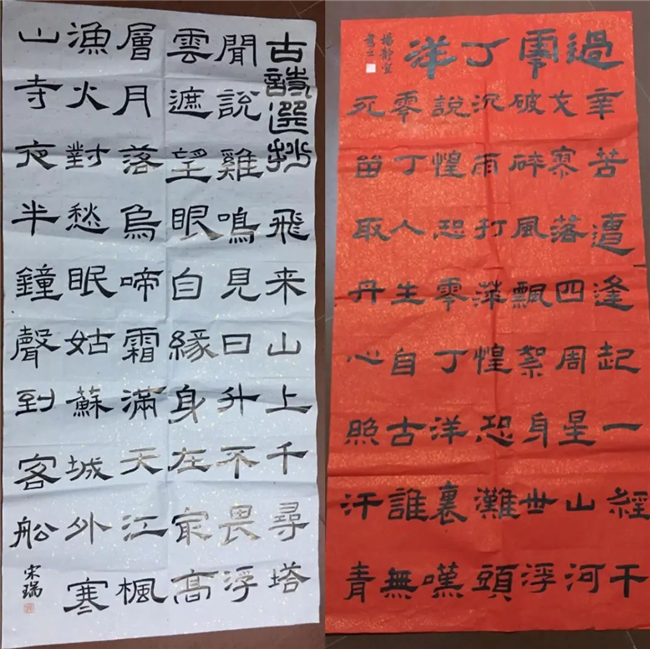 古詩選抄飛来山上千尋塔
聞說雞鳴見日升不畏浮
雲遮望眼自緣身在冣高
層月落烏啼霜滿天江楓
漁火對愁眠姑蘇城外寒
山寺夜半鐘聲到客船
宋瑞
過零丁洋
辛苦遭逢起一經干
戈寥落四周星山河
破碎風飄絮身世浮
沉雨打萍惶恐灘頭
說惶恐零丁洋裏嘆
零丁人生自古誰無
死留取丹心照汗青